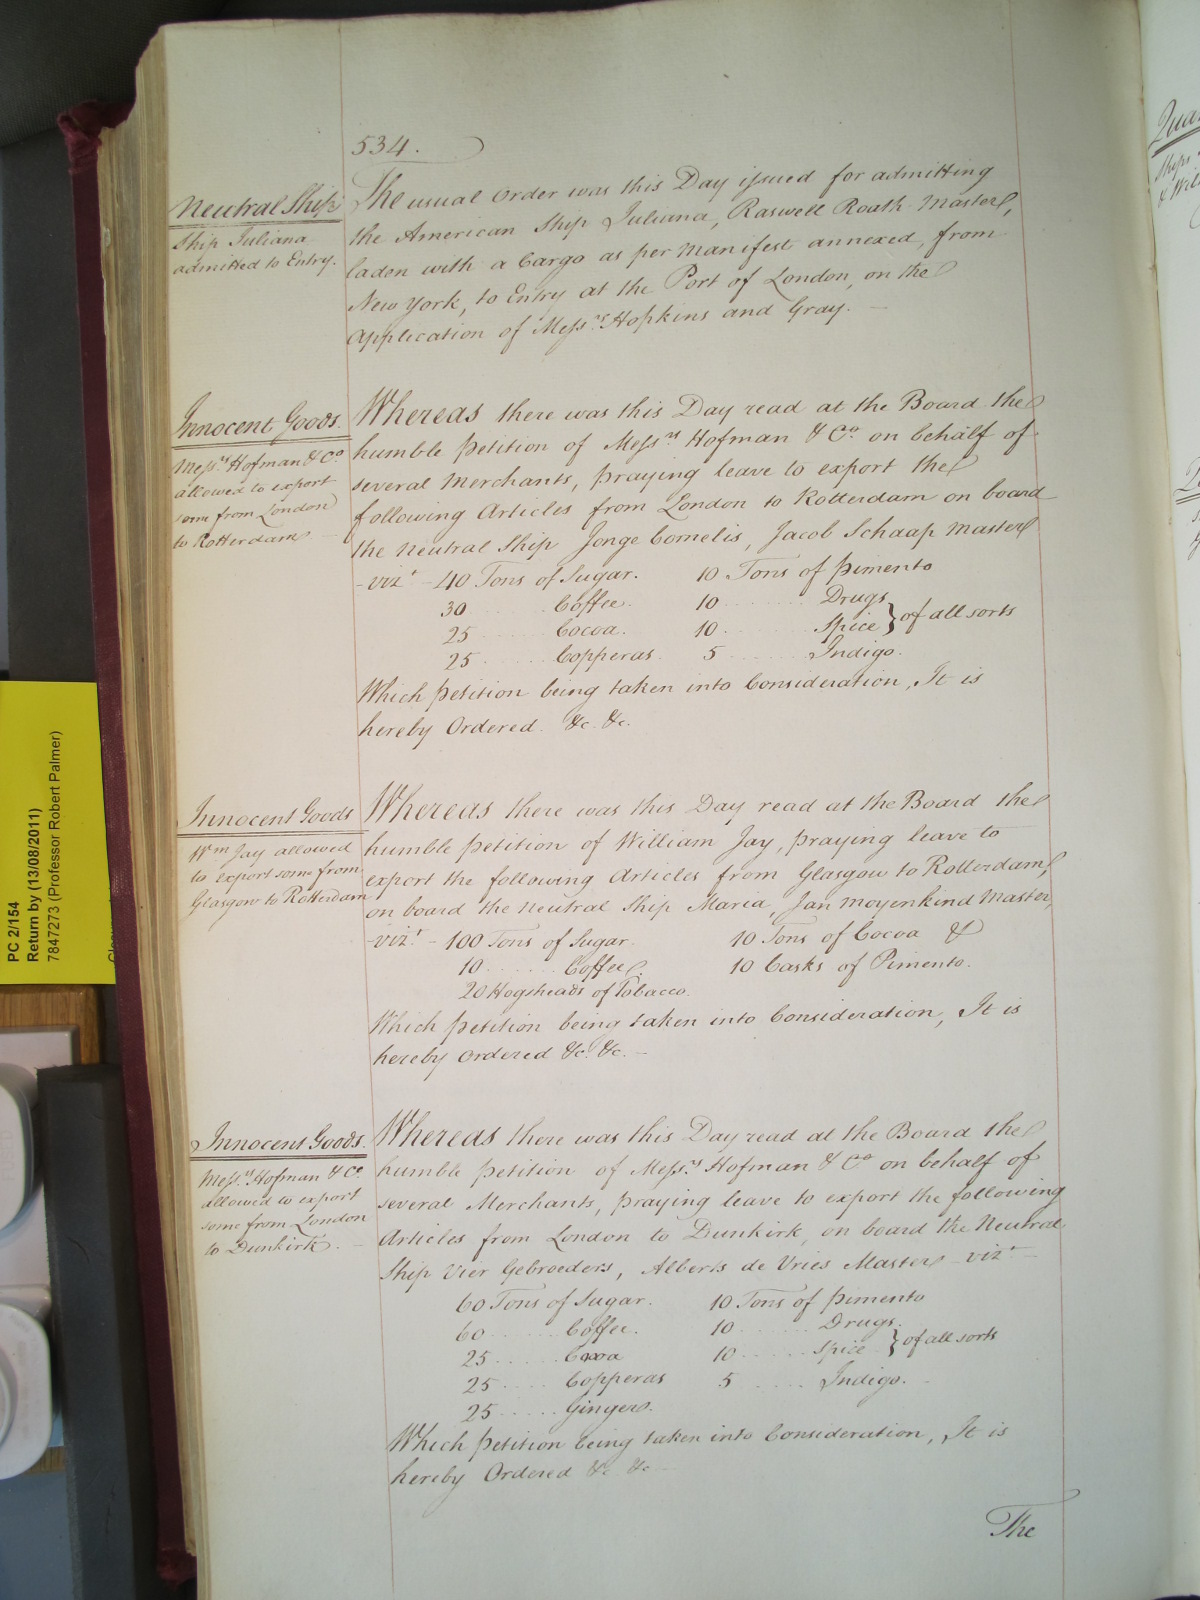 534.
Neutral Ship
Ship Juliana
admitted to Entry.
The usual Order was this Day issued for admitting
the American Ship Juliana, Raswell Roath Master,
laden with a Cargo as per Manifest annexed, from
New York, to Entry at the Port of London, on the
Application of Mess.rs Hopkins and Gray. —
Innocent Goods.
Mess.rs Hofman & Co.
allowed to export
some from London
to Rotterdam —
Whereas there was this Day read at the Board the
humble Petition of Mess.rs Hofman & Co. on behalf of
several Merchants, praying leave to export the
following Articles from London to Rotterdam on board
the Neutral Ship Jonge Cornelis, Jacob Schaap Master
- vizt. - 40 Tons of Sugar. 10 Tons of Pimento
30 ...... Coffee. 10 ........ Drugs } of all sorts
25 ...... Cocoa. 10 ........ Spice
25 ...... Copperas. 5 ........ Indigo.
Which Petition being taken into Consideration, It is
hereby Ordered. &c. &c.
Innocent Goods
Wm. Jay allowed
to export some from
Glasgow to Rotterdam
Whereas there was this Day read at the Board the
humble Petition of William Jay, praying leave to
export the following Articles from Glasgow to Rotterdam,
on board the Neutral Ship Maria, Jan Moyenkind Master,
- vizt. - 100 Tons of Sugar. 10 Tons of Cocoa &
10 ....... Coffee. 10 Casks of Pimento.
20 Hogsheads of Tobacco.
Which Petition being taken into Consideration, It is
hereby Ordered &c. &c. —
Innocent Goods.
Mess.rs Hofman & Co.
allowed to export
some from London
to Dunkirk. —
Whereas there was this Day read at the Board the
humble Petition of Mess.rs Hofman & Co. on behalf of
several Merchants, praying leave to export the following
Articles from London to Dunkirk, on board the Neutral
Ship Vier Gebroeders, Alberts de Vries Master - vizt. -
60 Tons of Sugar. 10 Tons of Pimento
60 ...... Coffee. 10 ...... Drugs. } of all sorts
25 ...... Cocoa 10 ...... Spice
25 ...... Copperas 5 ...... Indigo.
25 ...... Ginger.
Which Petition being taken into Consideration, It is
hereby Ordered &c. &c. —
The
PC 2/154
Return by (13/08/2011)
7847273 (Professor Robert Palmer)